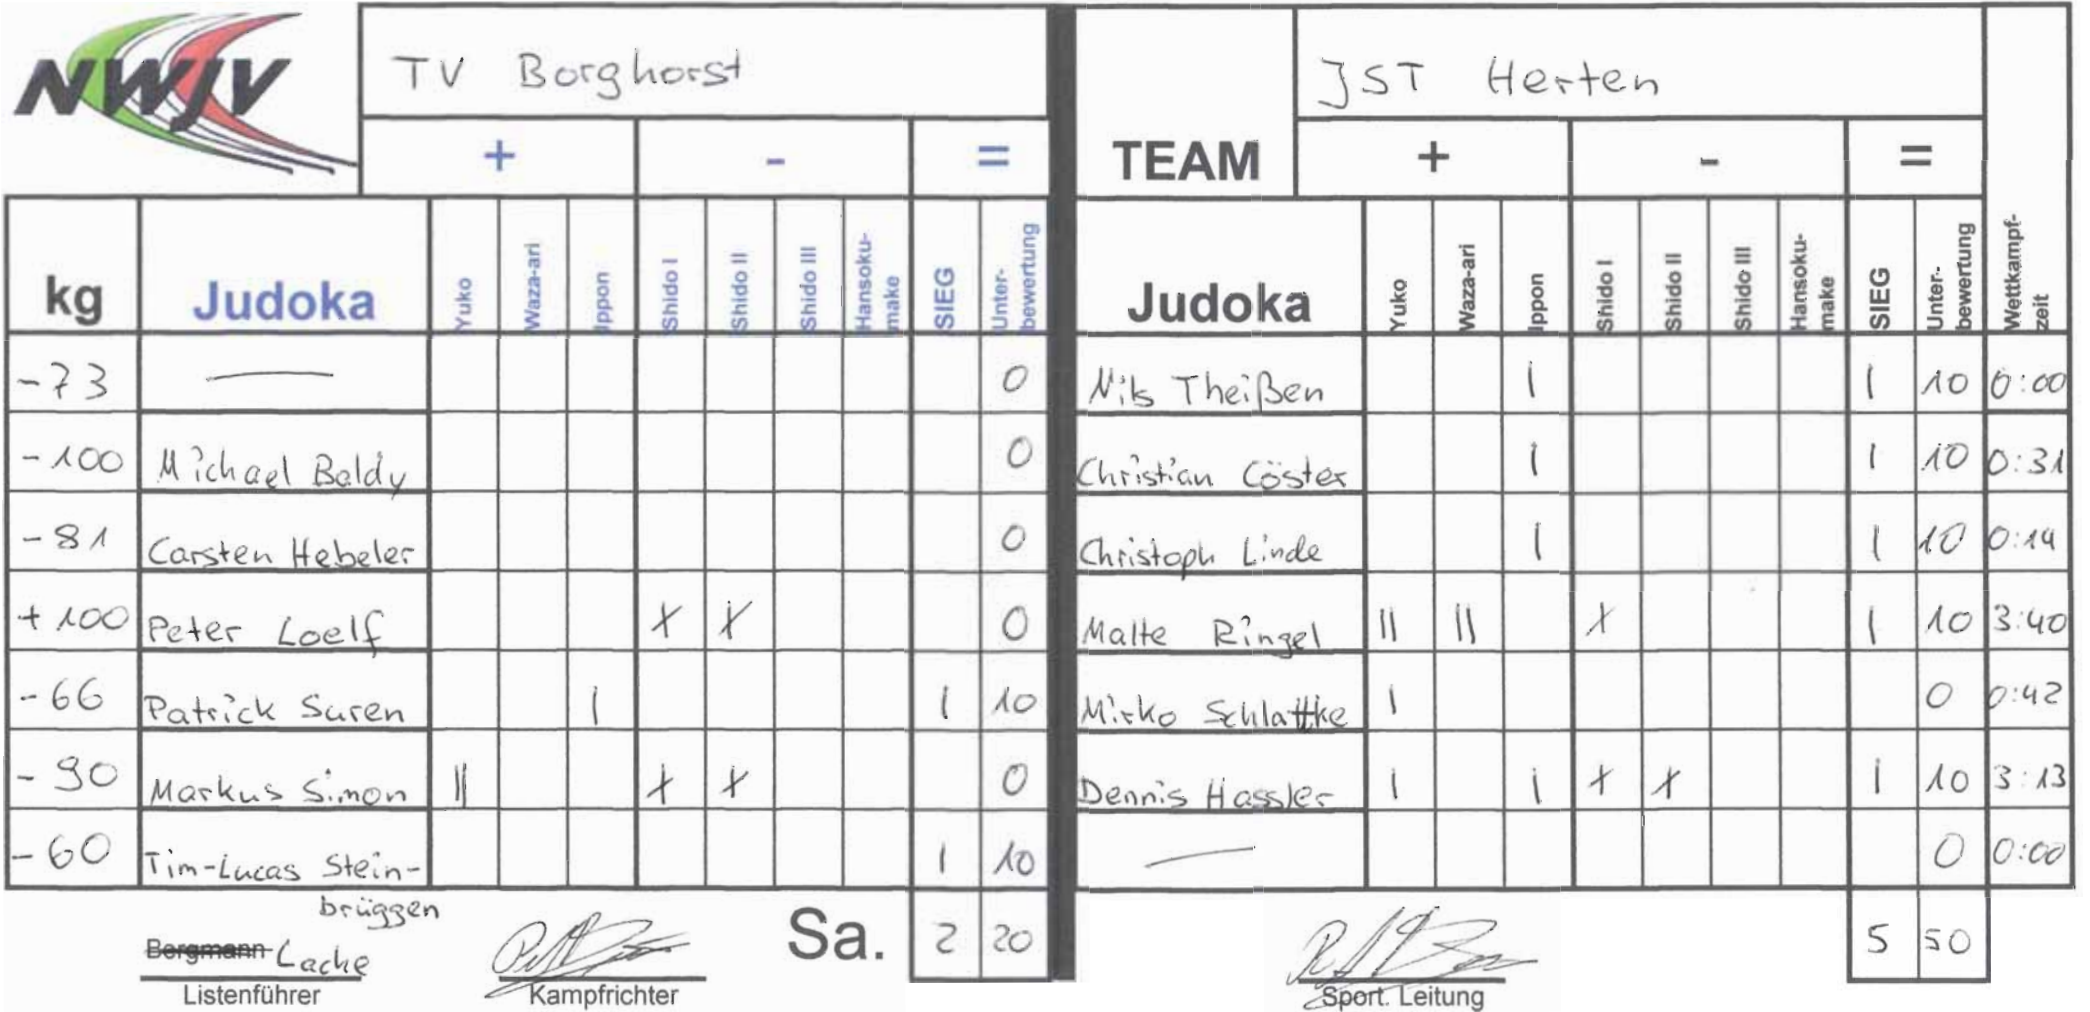 NWJV
TV Borghorst
TEAM
JST Herten
+ - =
+ - =
kg Judoka Yuko Waza-ari Ippon Shido I Shido II Shido III Hansoku-make SIEG Unter-bewertung Judoka Yuko Waza-ari Ippon Shido I Shido II Shido III Hansoku-make SIEG Unter-bewertung Wettkampf-zeit
-73 — 0 Nils Theißen | | 10 0:00
-100 Michael Boldy 0 Christian Cöster | | 10 0:31
-81 Carsten Hebeler 0 Christoph Linde | | 10 0:14
+100 Peter Loelf X X 0 Malte Ringel || || X | 10 3:40
-66 Patrick Suren | | 10 Mirko Schlattke | 0 0:42
-90 Markus Simon || X X 0 Dennis Hassler | | X X | 10 3:13
-60 Tim-Lucas Stein- | 10 — 0 0:00
brüggen
Bergmann Lache
Sa. 2 20 5 50
Listenführer Kampfrichter Sport. Leitung